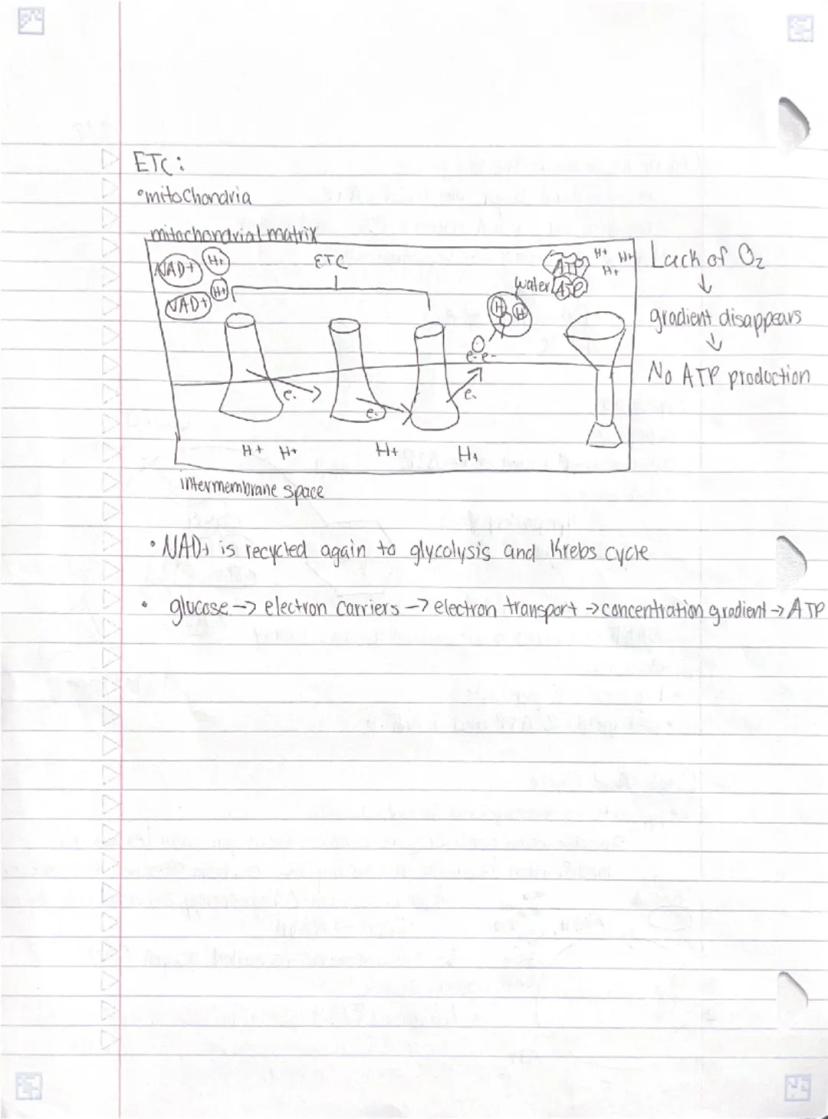 ETC:
•mitochondria
mitochondrial matrix
NAD+ H+
NAD+ H+
ETC
water
H H
O
e- e-
ATP
ATP
H+ H+
H+
e-
e-
e-
H+ H+ H+ H+
intermembrane space
Lack of O₂
↓
gradient disappears
↓
No ATP production
• NAD+ is recycled again to glycolysis and Krebs cycle
• glucose → electron carriers → electron transport → concentration gradient → ATP